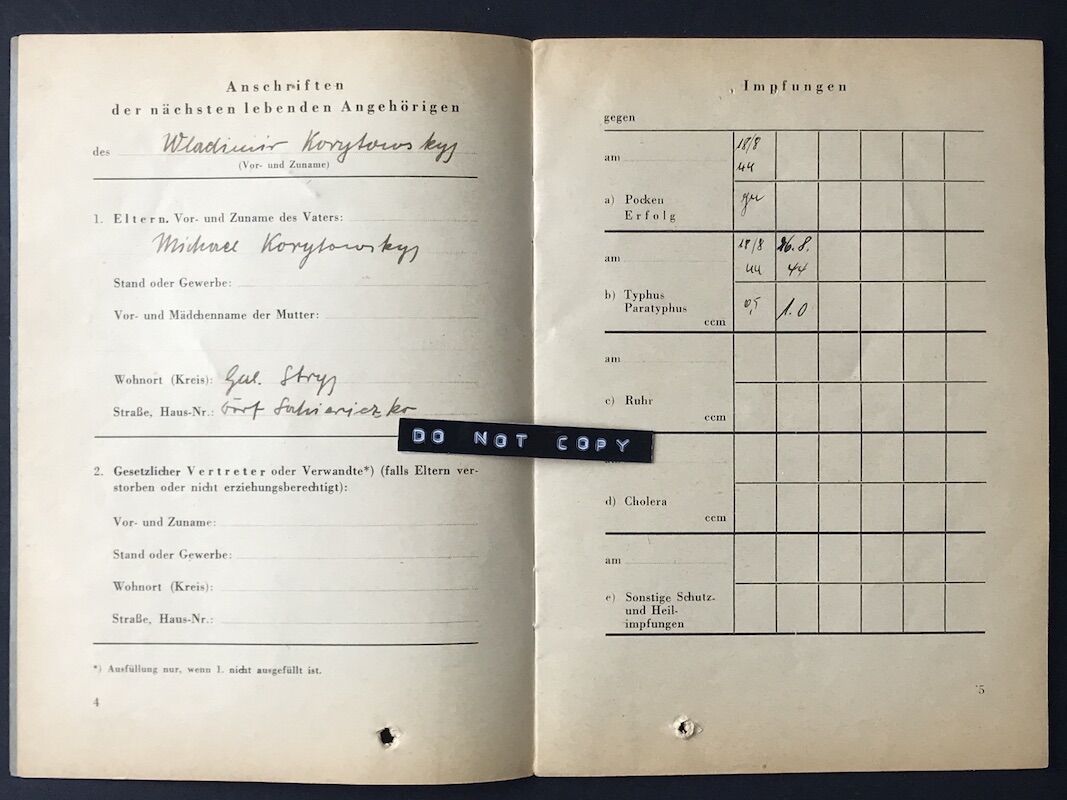 Anschriften
der nächsten lebenden Angehörigen
des Wladimir Korytowskyj
(Vor- und Zuname)
1. Eltern, Vor- und Zuname des Vaters:
Michael Korytowskyj
Stand oder Gewerbe:
Vor- und Mädchenname der Mutter:
Wohnort (Kreis): Gal. Stryj
Straße, Haus-Nr.: Dorf
2. Gesetzlicher Vertreter oder Verwandte*) (falls Eltern ver-
storben oder nicht erziehungsberechtigt):
Vor- und Zuname:
Stand oder Gewerbe:
Wohnort (Kreis):
Straße, Haus-Nr.:
*) Ausfüllung nur, wenn 1. nicht ausgefüllt ist.
4
DO NOT COPY
Impfungen
gegen
am 18/8
44
a) Pocken
Erfolg
am 18/8 26.8.
44 44
b) Typhus
Paratyphus 0,5 1.0
ccm
am
c) Ruhr
ccm
d) Cholera
ccm
am
e) Sonstige Schutz-
und Heil-
impfungen
5